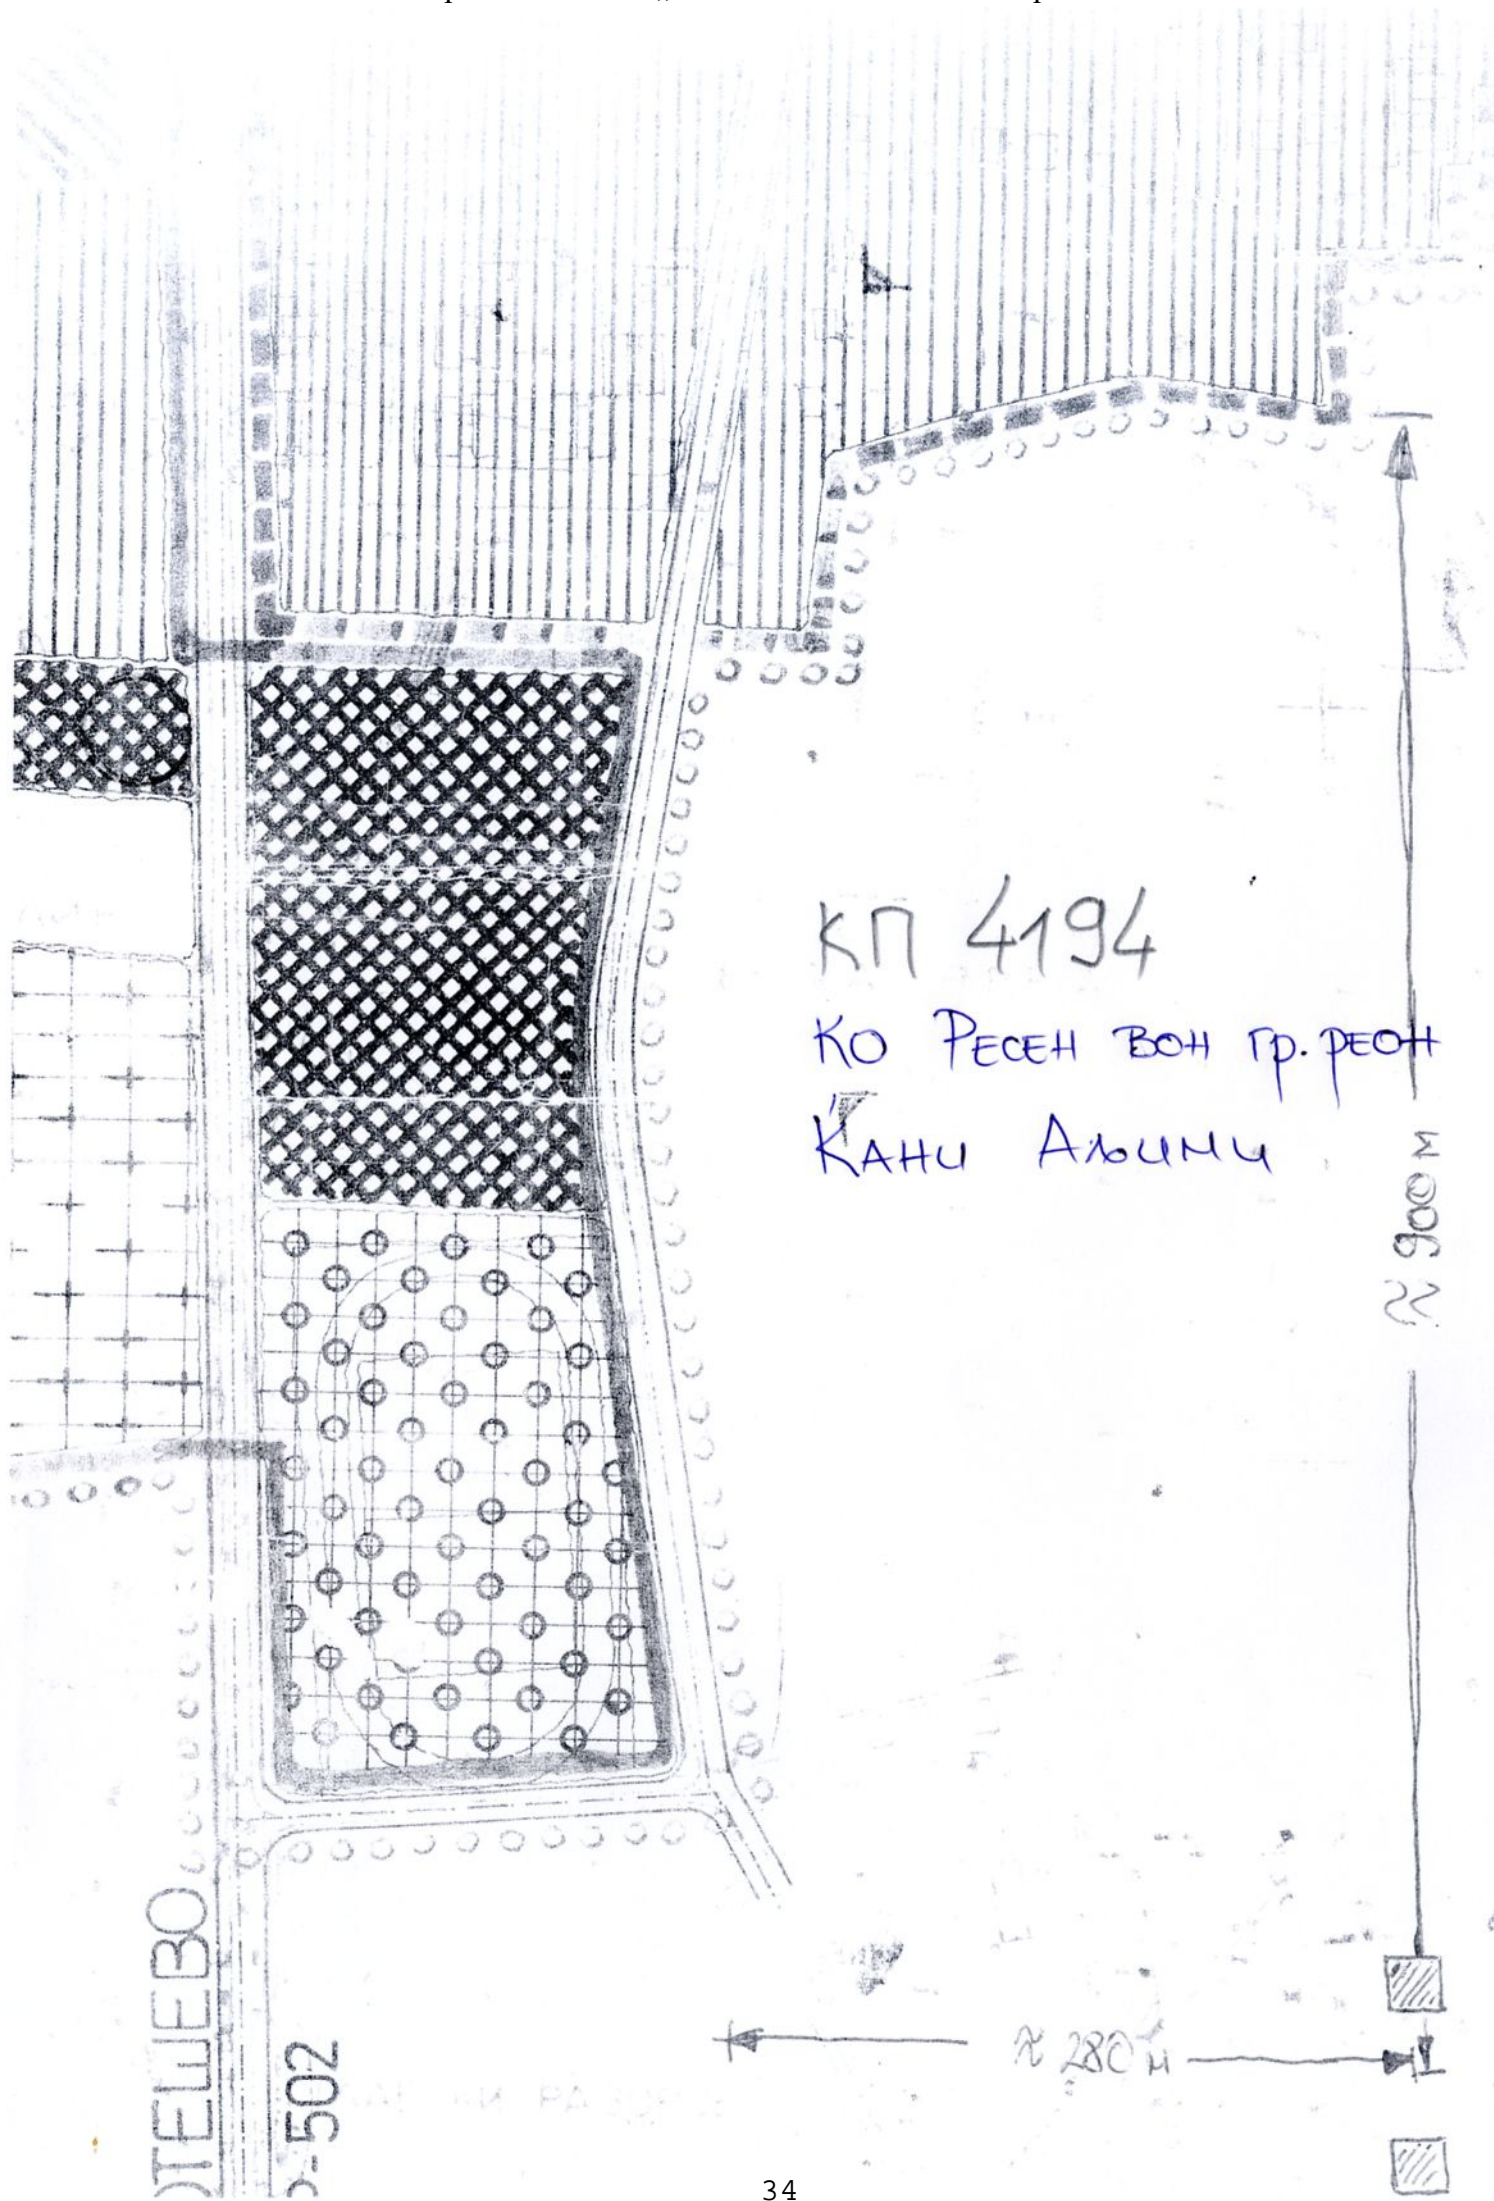 КП 4194
КО РЕСЕН ВОН ГР. РЕОН
КАНИ АЉИМИ
≈ 900 м
≈ 280 м
ОТЕШЕВО
Р-502
34